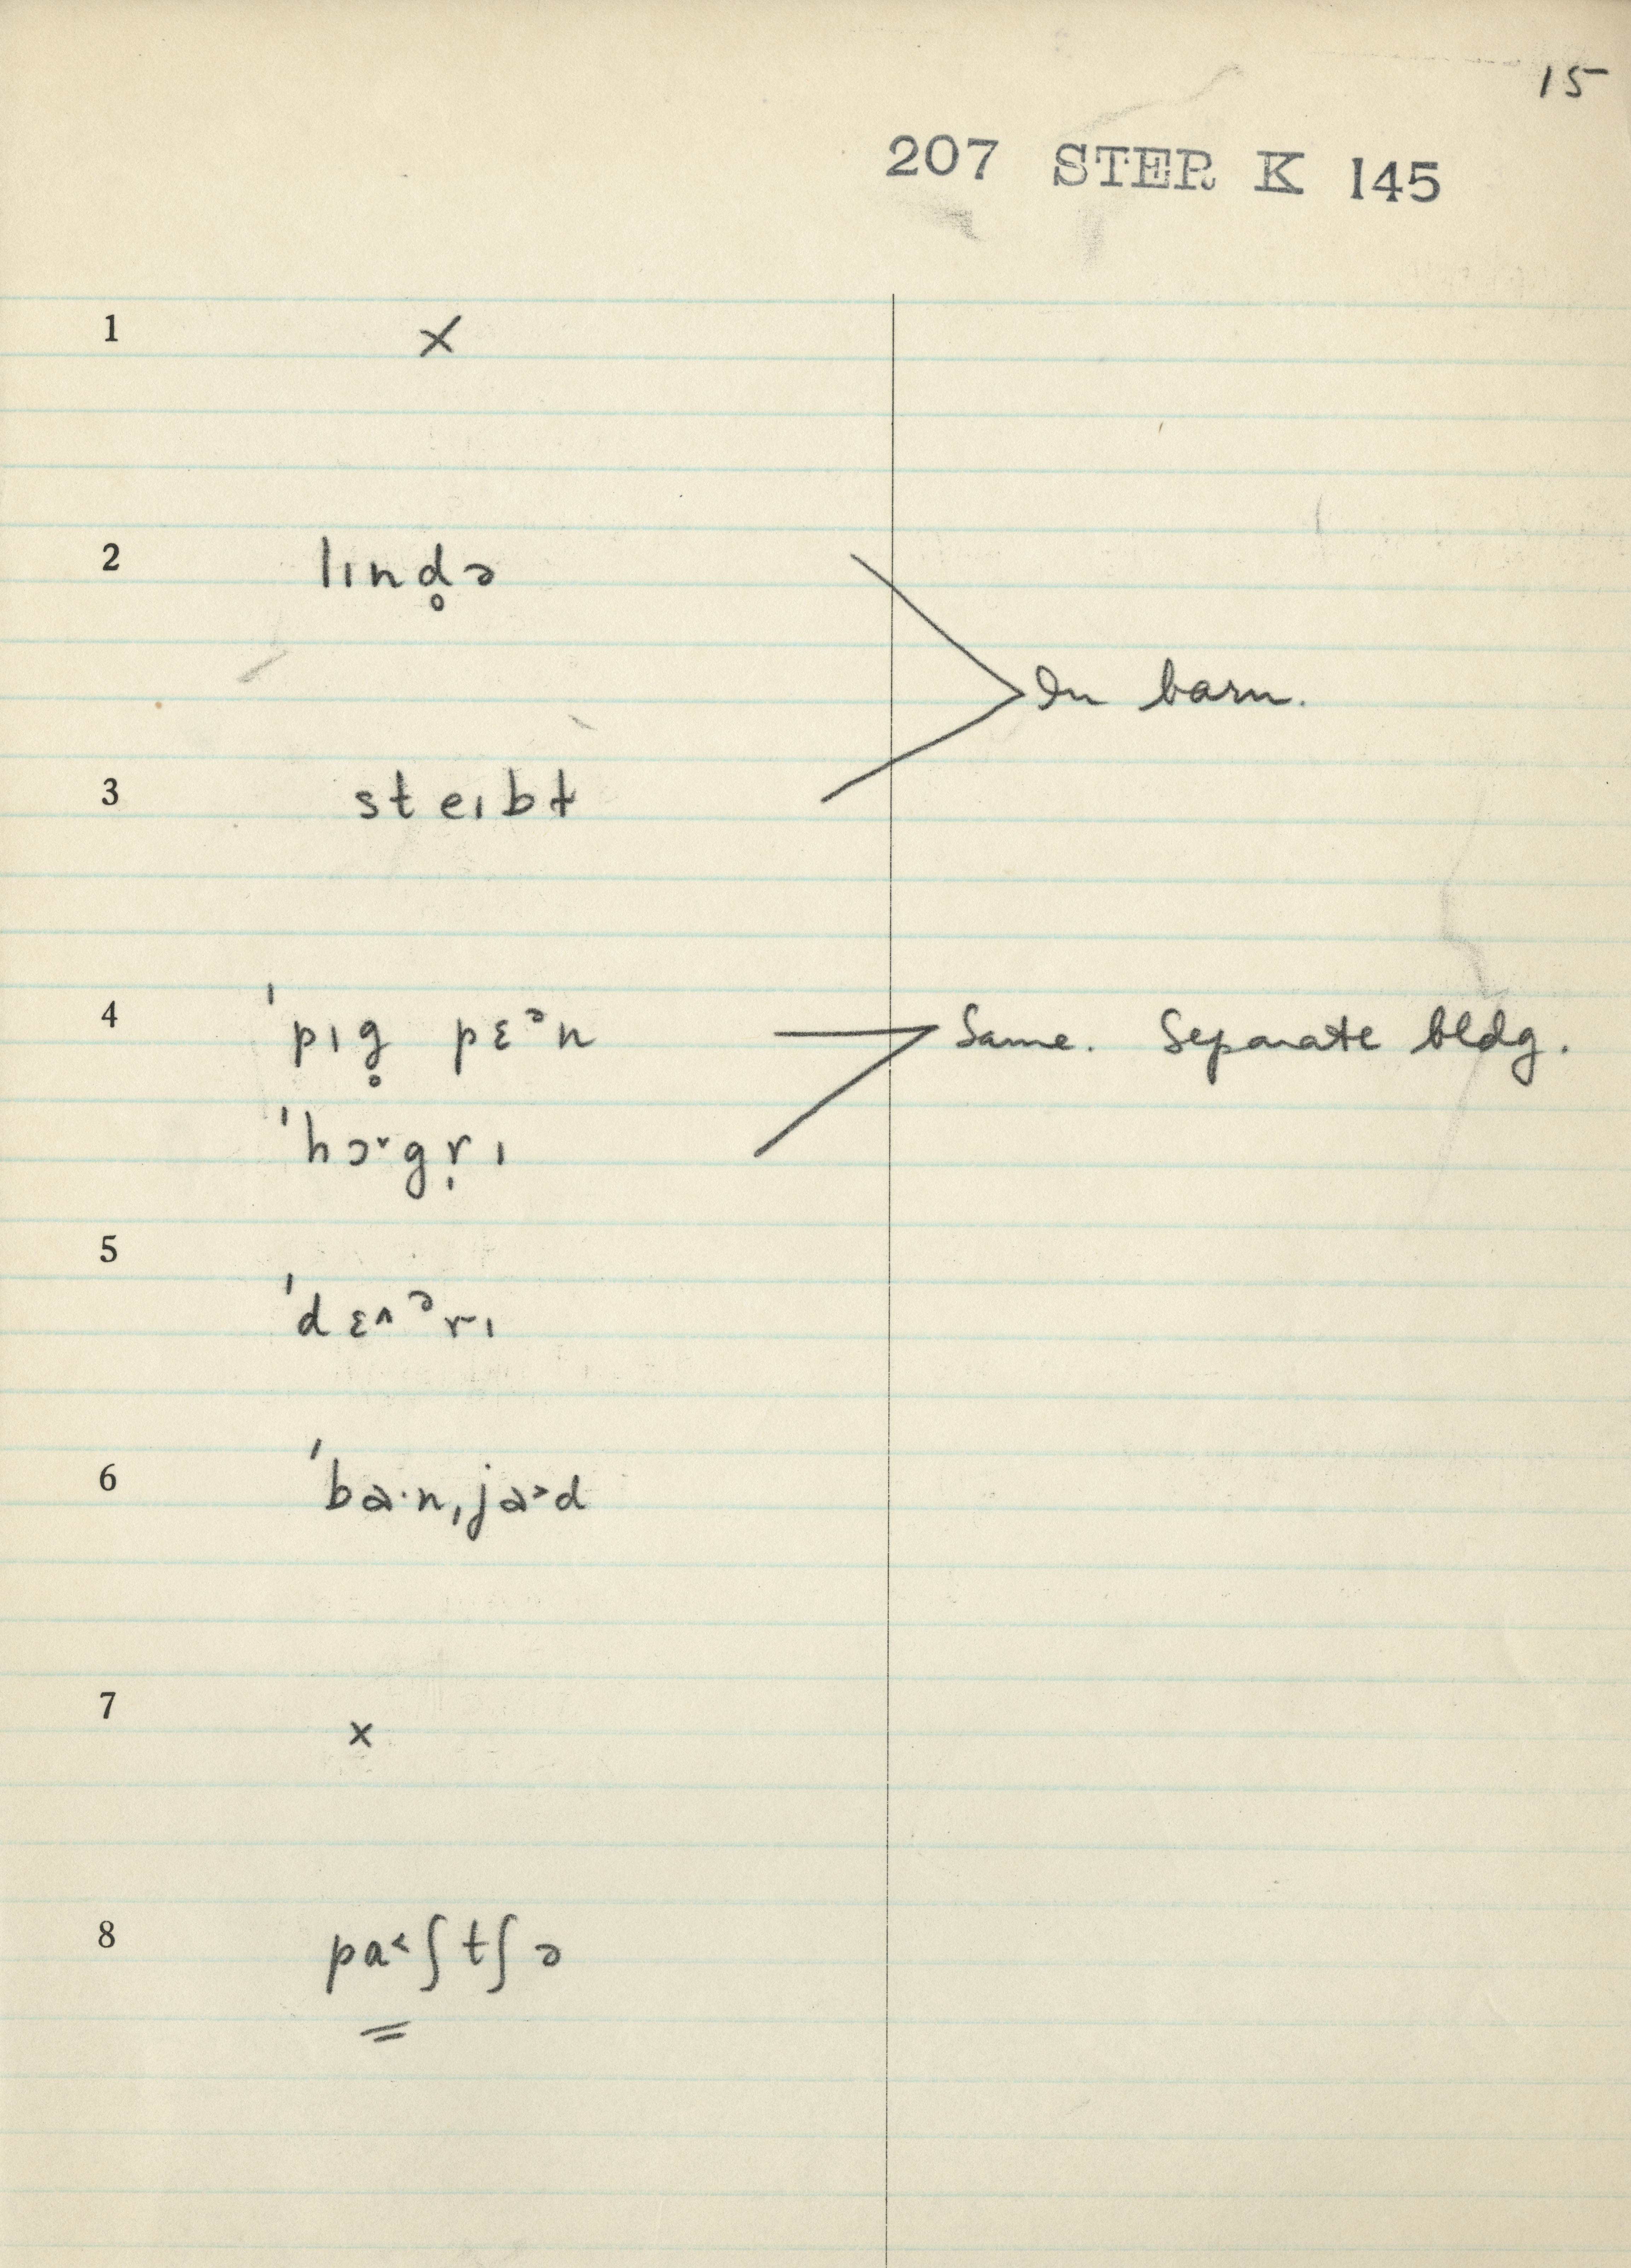 15
207 STER K 145
1 ×
2 lɪnd̥ə
In barn.
3 steɪbɫ
4 ˈpɪg̥ pɛᵊn
Same. Separate bldg.
ˈhɔ˅gr̩ɪ
5
ˈdɛ˄ᵊrɪ
6 ˈba·nˌja˃d
7 ×
8 pa˂ʃtʃə